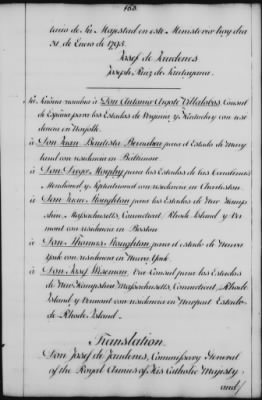 163.
taria de Su Majestad en este Ministerio hoy dia
31. de Enero de 1795.
Josef de Jaudenes
Joseph Ruiz de Santayana.
Su Señoria nombra à Don Antonio Argote Villalobos Consul
de España para los Estados de Virginia y Kentuckey con resi-
dencia en Norfolk.
à Don Juan Bautista Bernabeu para el Estado de Mary
land con residencia en Baltimore
à Don Diego Morphy para los Estados de las Carolinas
Meridional y Septentrional con residencia en Charleston.
à Don Juan Stoughton para los Estados de New Hamp-
shire, Massachusetts, Connecticut, Rhode Island y Ver
mont con residencia en Boston
à Don Thomas Stoughton para el estado de Nueva
York con residencia en Nueva York.
à Don Josef Wiseman Vice Consul para los Estados
de New Hampshire Massachusetts, Connecticut, Rhode
Island y Vermont con residencia en Newport Estado
de Rhode Island.
Translation.
Don Josef de Jaudenes, Commissary General
of the Royal Armies of His Catholic Majesty,
and